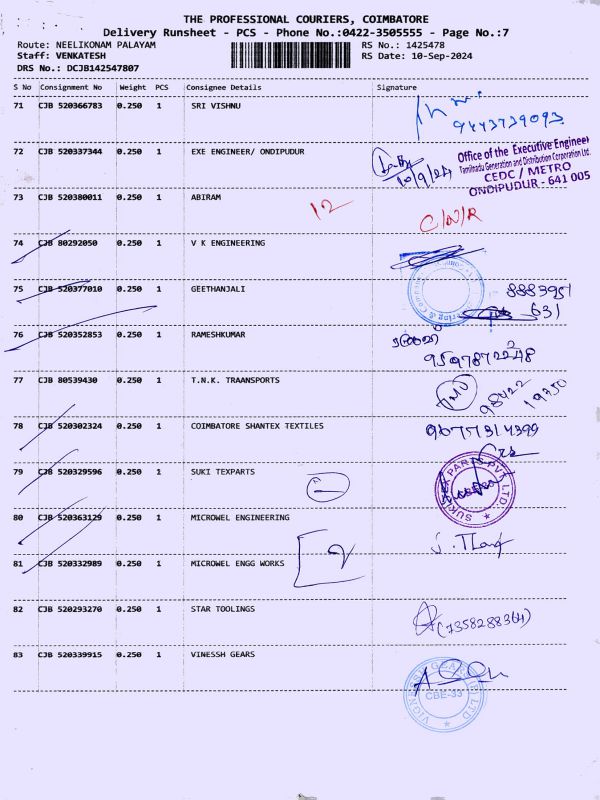 THE PROFESSIONAL COURIERS, COIMBATORE
Delivery Runsheet - PCS - Phone No.:0422-3505555 - Page No.:7
Route: NEELIKONAM PALAYAM RS No.: 1425478
Staff: VENKATESH RS Date: 10-Sep-2024
DRS No.: DCJB142547807
S No Consignment No Weight PCS Consignee Details Signature
71 CJB 520366783 0.250 1 SRI VISHNU
9443739093
72 CJB 520337344 0.250 1 EXE ENGINEER/ ONDIPUDUR
10/9/24
Office of the Executive Engineer
Tamilnadu Generation and Distribution Corporation Ltd.
CEDC / METRO
ONDIPUDUR - 641 005
73 CJB 520380011 0.250 1 ABIRAM
12 C/N/R
74 CJB 80292050 0.250 1 V K ENGINEERING
75 CJB 520377010 0.250 1 GEETHANJALI
8883951
631
76 CJB 520352853 0.250 1 RAMESHKUMAR
77 CJB 80539430 0.250 1 T.N.K. TRAANSPORTS
98422
19750
78 CJB 520302324 0.250 1 COIMBATORE SHANTEX TEXTILES
9677314399
79 CJB 520329596 0.250 1 SUKI TEXPARTS
80 CJB 520363129 0.250 1 MICROWEL ENGINEERING
81 CJB 520332989 0.250 1 MICROWEL ENGG WORKS
82 CJB 520293270 0.250 1 STAR TOOLINGS
83 CJB 520339915 0.250 1 VINESSH GEARS
CBE-33